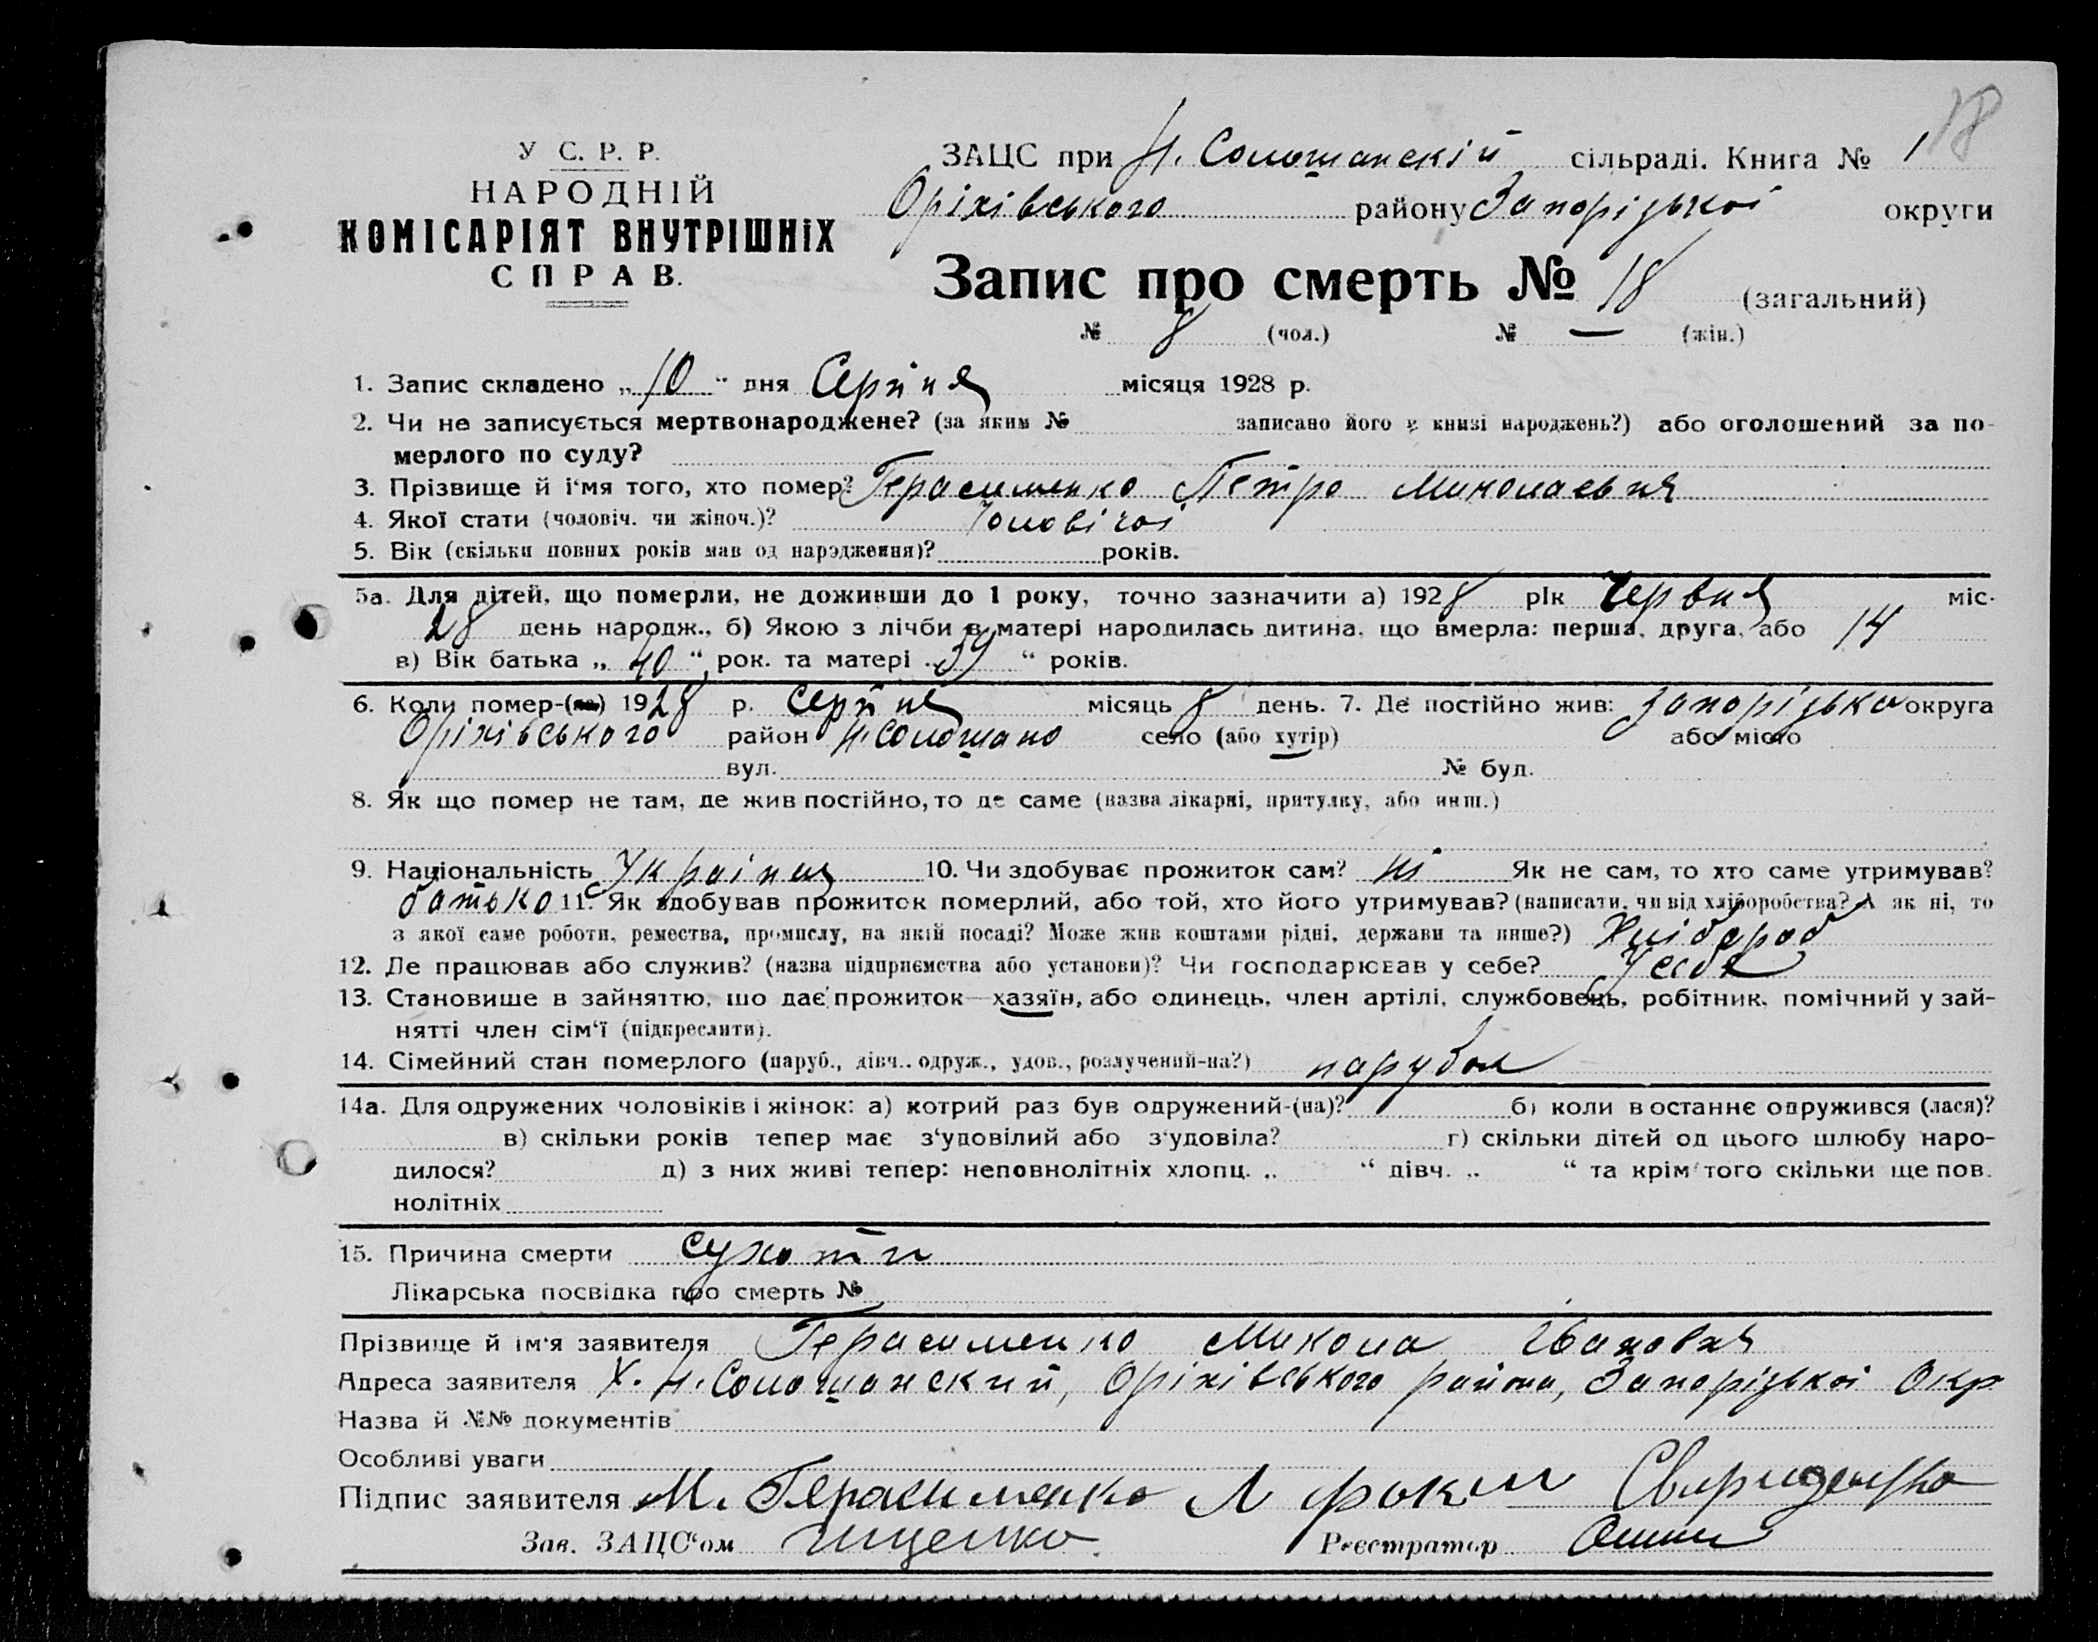 18
У С. Р. Р.
НАРОДНІЙ
КОМІСАРІЯТ ВНУТРІШНІХ
СПРАВ.
ЗАЦС при Н. Солошанскій сільраді. Книга № 1
Оріхівського району Запорізької округи
Запис про смерть № 18 (загальний)
№ 8 (чол.) № — (жін.)
1. Запис складено „10“ дня Серпня місяця 1928 р.
2. Чи не записується мертвонароджене? (за яким № записано його у книзі народжень?) або оголошений за по-
мерлого по суду?
3. Прізвище й і‘мя того, хто помер? Герасименко Петро Миколаевич
4. Якої стати (чоловіч. чи жіноч.)? Чоловічої
5. Вік (скільки повних років мав од народження)? років.
5а. Для дітей, що померли, не доживши до 1 року, точно зазначити а) 1928 рік Червня міс.
28 день народж., б) Якою з лічби в матері народилась дитина, що вмерла: перша, друга, або 14
в) Вік батька „40“ рок. та матері „39“ років.
6. Коли помер-(ла) 1928 р. Серпня місяць 8 день. 7. Де постійно жив: Запорізька округа
Оріхівського район Н. Солошано село (або хутір) або місто
вул. № буд.
8. Як що помер не там, де жив постійно, то де саме (назва лікарні, притулку, або инш.)
9. Національність Українец 10. Чи здобуває прожиток сам? ні Як не сам, то хто саме утримував?
батько 11. Як здобував прожиток померлий, або той, хто його утримував? (написати, чи від хліборобства? А як ні, то
з якої саме роботи, ремества, промислу, на якій посаді? Може жив коштами рідні, держави та инше?) Хлібороб
12. Де працював або служив? (назва підприємства або установи)? Чи господарював у себе? У себе
13. Становище в зайняттю, що дає прожиток—хазяїн, або одинець, член артілі, службовець, робітник, помічний у зай-
нятті член сім‘ї (підкреслити).
14. Сімейний стан померлого (паруб., дівч., одруж., удов., розлучений-на?) парубок
14а. Для одружених чоловіків і жінок: а) котрий раз був одружений-(на)? б) коли востаннє одружився (лася)?
в) скільки років тепер має з‘удовілий або з‘удовіла? г) скільки дітей од цього шлюбу наро-
дилося? д) з них живі тепер: неповнолітніх хлопц. „ “ дівч. „ “ та крім того скільки ще пов.
нолітніх
15. Причина смерти сухоти
Лікарська посвідка про смерть №
Прізвище й ім‘я заявителя Герасименко Микола Іванович
Адреса заявителя х. Н. Солошанский, Оріхівського району, Запорізької Окр
Назва й №№ документів
Особливі уваги
Підпис заявителя М. Герасименко Свириденко
Зав. ЗАЦС‘ом Іщенко Реєстратор